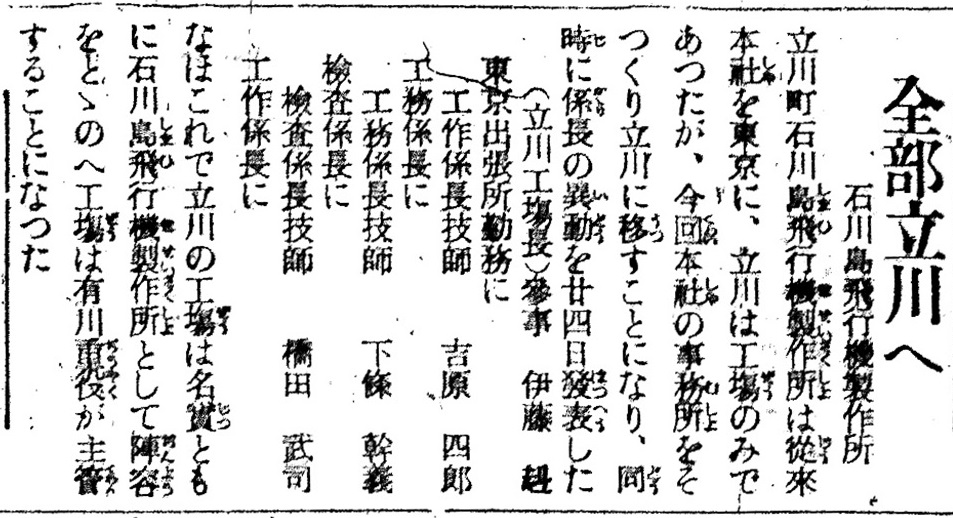 全部立川へ
石川島飛行機製作所
立川町石川島飛行機製作所は從來
本社を東京に、立川は工塲のみで
あつたが、今回本社の事務所をそ
つくり立川に移すことになり、同
時に係長の異動を廿四日發表した
(立川工塲長)參事 伊藤
東京出張所勤務に
工作係長技師 吉原 四郎
工務係長に
工務係長技師 下條 幹義
檢査係長に
檢査係長技師 橋田 武司
工作係長に
なほこれで立川の工塲は名實とも
に石川島飛行機製作所として陣容
をとゝのへ工塲は有川重役が主管
することになつた